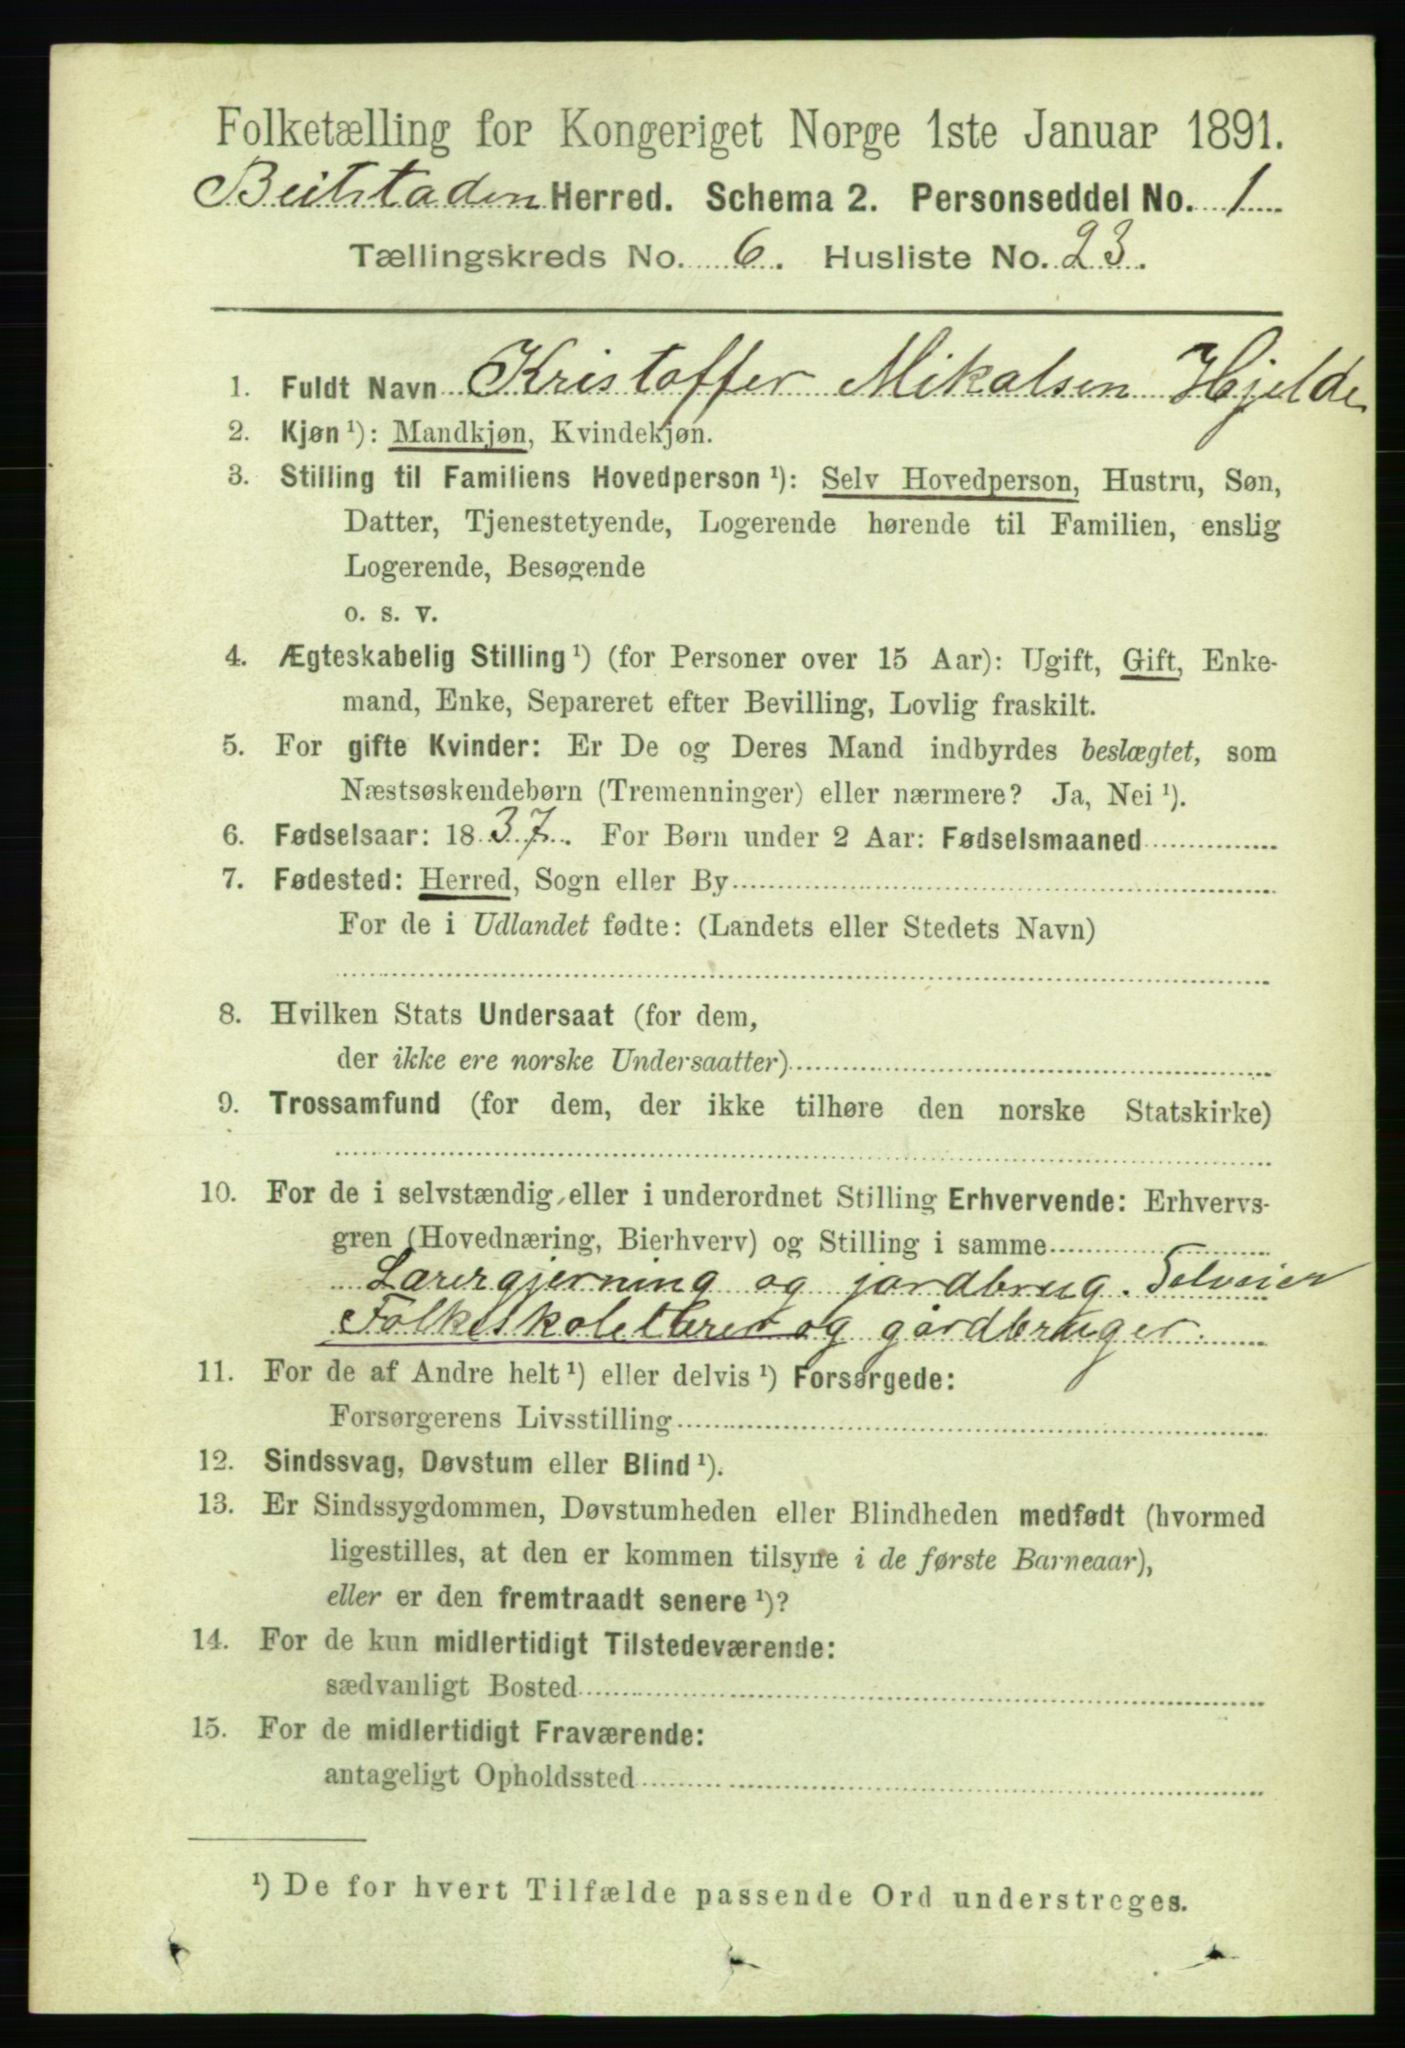 Folketælling for Kongeriget Norge 1ste Januar 1891.
Beitstaden Herred. Schema 2. Personseddel No. 1
Tællingskreds No. 6. Husliste No. 23.
1. Fuldt Navn Kristoffer Mikalsen Hjelde
2. Kjøn ¹): Mandkjøn, Kvindekjøn.
3. Stilling til Familiens Hovedperson ¹): Selv Hovedperson, Hustru, Søn,
Datter, Tjenestetyende, Logerende hørende til Familien, enslig
Logerende, Besøgende
o. s. v.
4. Ægteskabelig Stilling ¹) (for Personer over 15 Aar): Ugift, Gift, Enke-
mand, Enke, Separeret efter Bevilling, Lovlig fraskilt.
5. For gifte Kvinder: Er De og Deres Mand indbyrdes beslægtet, som
Næstsøskendebørn (Tremenninger) eller nærmere? Ja, Nei ¹).
6. Fødselsaar: 1837. For Børn under 2 Aar: Fødselsmaaned
7. Fødested: Herred, Sogn eller By
For de i Udlandet fødte: (Landets eller Stedets Navn)
8. Hvilken Stats Undersaat (for dem,
der ikke ere norske Undersaatter)
9. Trossamfund (for dem, der ikke tilhøre den norske Statskirke)
10. For de i selvstændig eller i underordnet Stilling Erhvervende: Erhvervs-
gren (Hovednæring, Bierhverv) og Stilling i samme
Lærergjerning og jordbrug. Selveier
Folkeskolelærer og gårdbruger.
11. For de af Andre helt ¹) eller delvis ¹) Forsørgede:
Forsørgerens Livsstilling
12. Sindssvag, Døvstum eller Blind ¹).
13. Er Sindssygdommen, Døvstumheden eller Blindheden medfødt (hvormed
ligestilles, at den er kommen tilsyne i de første Barneaar),
eller er den fremtraadt senere ¹)?
14. For de kun midlertidigt Tilstedeværende:
sædvanligt Bosted
15. For de midlertidigt Fraværende:
antageligt Opholdssted
¹) De for hvert Tilfælde passende Ord understreges.